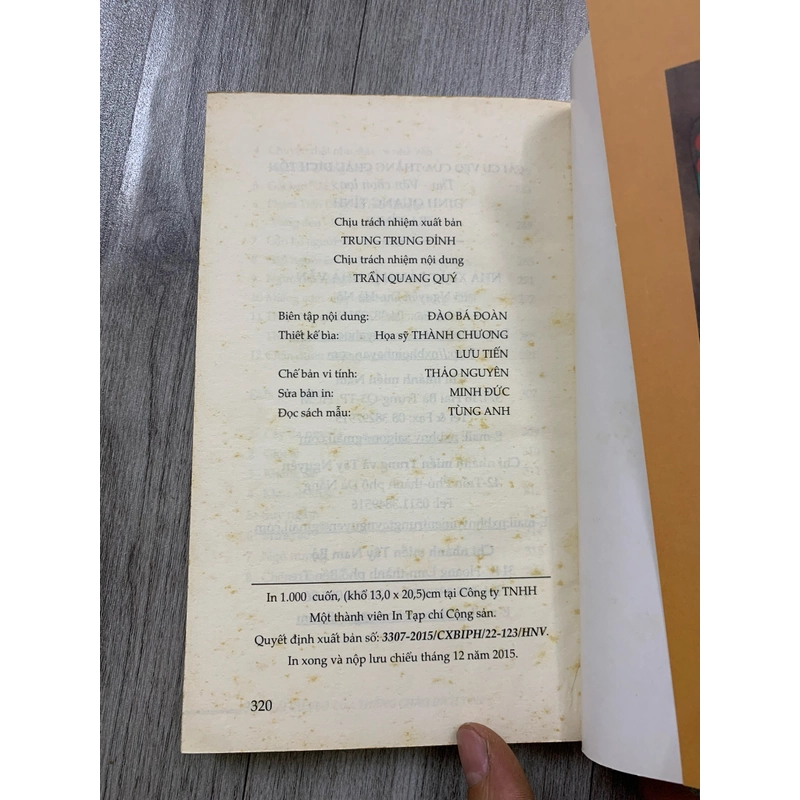 Chịu trách nhiệm xuất bản
TRUNG TRUNG ĐỈNH
Chịu trách nhiệm nội dung
TRẦN QUANG QUÝ
Biên tập nội dung: ĐÀO BÁ ĐOÀN
Thiết kế bìa: Họa sỹ THÀNH CHƯƠNG
LƯU TIẾN
Chế bản vi tính: THẢO NGUYÊN
Sửa bản in: MINH ĐỨC
Đọc sách mẫu: TÙNG ANH
In 1.000 cuốn, (khổ 13,0 x 20,5)cm tại Công ty TNHH
Một thành viên In Tạp chí Cộng sản.
Quyết định xuất bản số: 3307-2015/CXBIPH/22-123/HNV.
In xong và nộp lưu chiểu tháng 12 năm 2015.
320